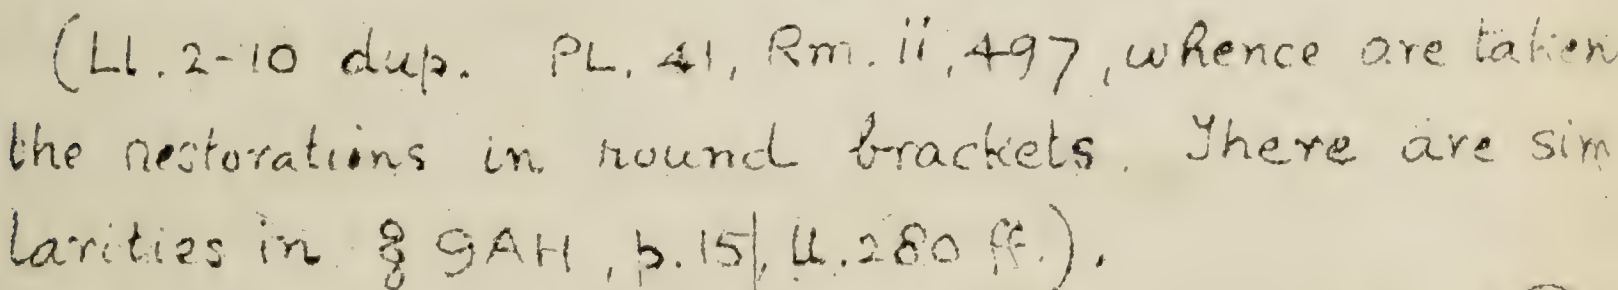 (Ll. 2-10 dup. PL. 41, Rm. ii, 497, whence are taken
the restorations in round brackets. There are sim
larities in § 9AH, p. 15, ll. 280 ff.).